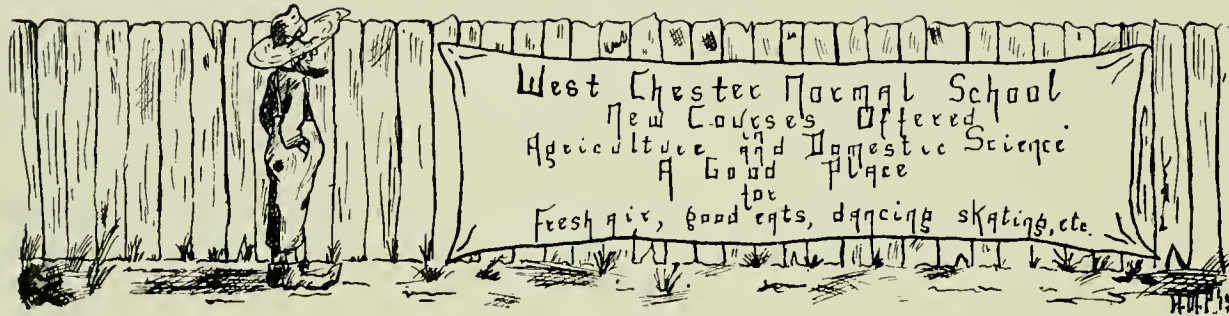 West Chester Normal School
New Courses Offered
in
Agriculture and Domestic Science
A Good Place
for
Fresh air, good eats, dancing skating, etc.